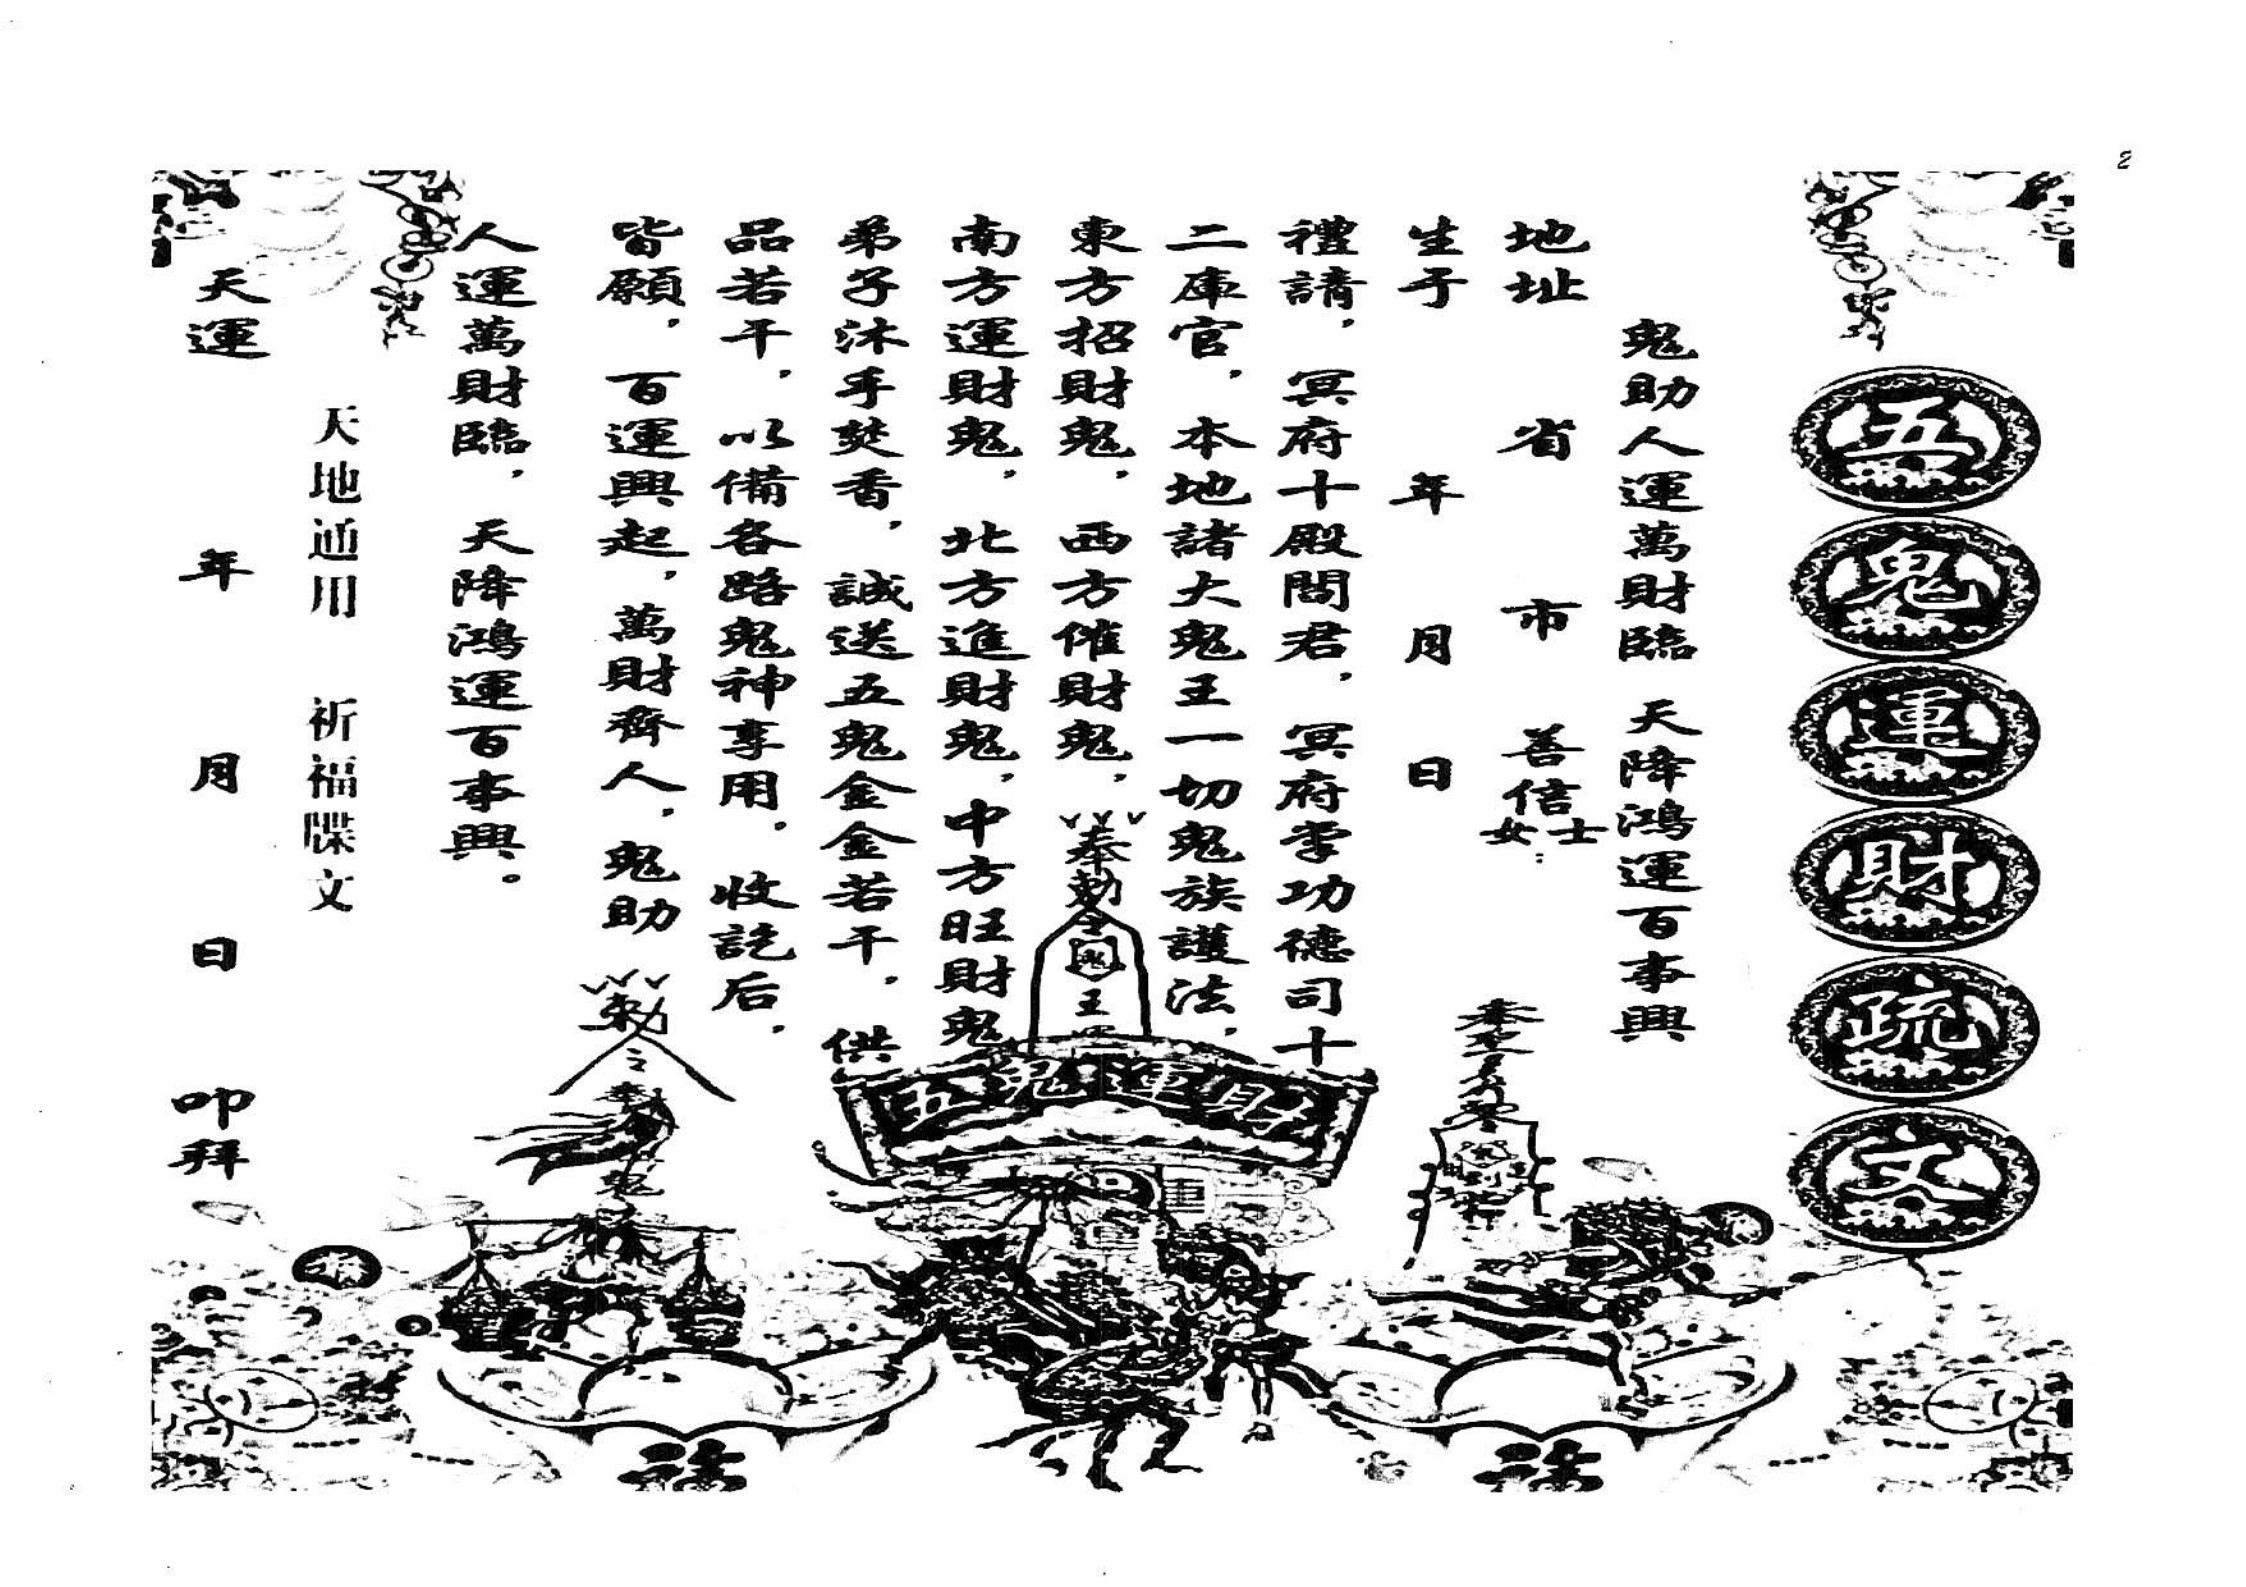 2
五鬼運財疏文
鬼助人運萬財臨 天降鴻運百事興
地址 省 市 善信士女：
生于 年 月 日
禮請，冥府十殿閻君，冥府掌功德司十
二庫官，本地諸大鬼王一切鬼族護法，
東方招財鬼，西方催財鬼，
南方運財鬼，北方進財鬼，中方旺財鬼
弟子沐手焚香，誠送五鬼金金若干，供
品若干，以備各路鬼神享用，收訖后，
皆願，百運興起，萬財齊人，鬼助
人運萬財臨，天降鴻運百事興。
天地通用 祈福牒文
天運 年 月 日 叩拜
奉勅令
王
勅令
鬼
五鬼運財
福
福